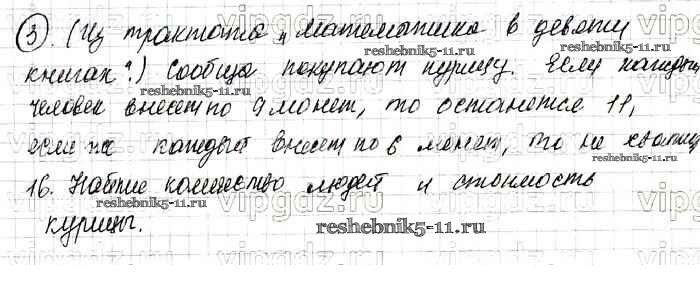 ③. (Из трактата „Математика в девяти
книгах".) Сообща покупают курицу. Если каждый
человек внесет по 9 монет, то останется 11,
если же каждый внесет по 6 монет, то не хватит
16. Найдите количество людей и стоимость
курицы.
reshebnik5-11.ru
reshebnik5-11.ru
reshebnik5-11.ru
reshebnik5-11.ru
vipgdz.ru
vipgdz.ru
vipgdz.ru
vipgdz.ru